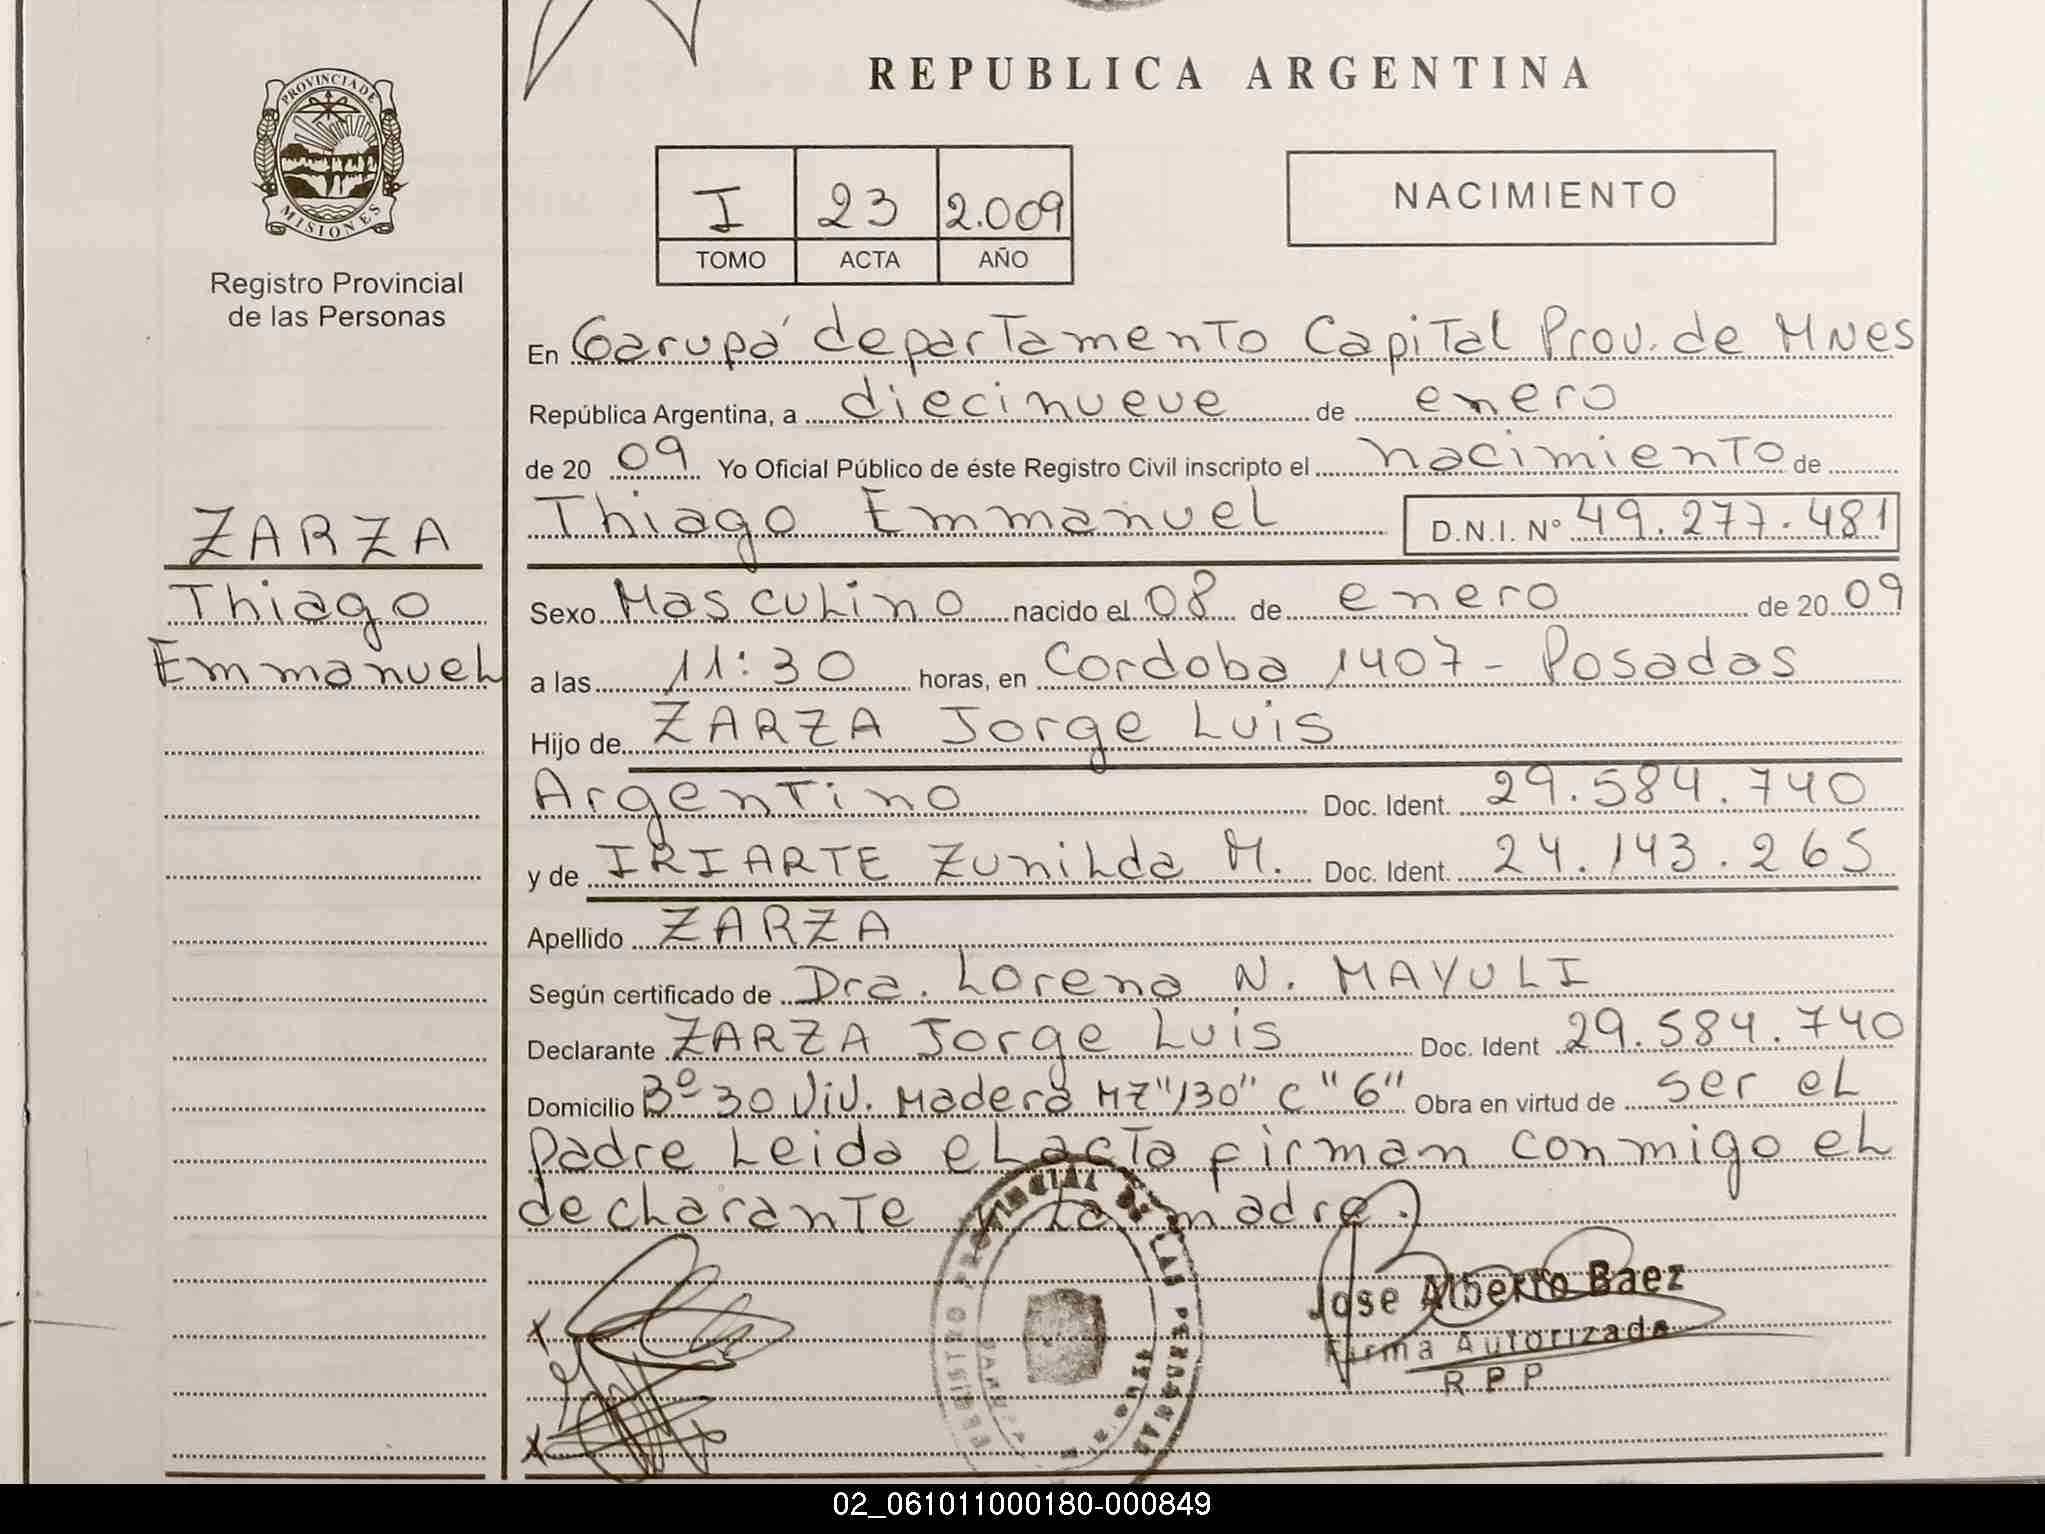 REPUBLICA ARGENTINA
PROVINCIA DE
MISIONES
Registro Provincial
de las Personas
I 23 2.009
TOMO ACTA AÑO
NACIMIENTO
En Garupá departamento Capital Prov. de MNes
República Argentina, a diecinueve de enero
de 20 09 Yo Oficial Público de éste Registro Civil inscripto el nacimiento de
Thiago Emmanuel D.N.I. Nº 49.277.481
ZARZA
Thiago
Emmanuel
Sexo Masculino nacido el 08 de enero de 20 09
a las 11:30 horas, en Cordoba 1407 - Posadas
Hijo de ZARZA Jorge Luis
Argentino Doc. Ident. 29.584.740
y de IRIARTE Zunilda M. Doc. Ident. 24.143.265
Apellido ZARZA
Según certificado de Dra. Lorena N. MAYULI
Declarante ZARZA Jorge Luis Doc. Ident 29.584.740
Domicilio Bº 30 Viv. Madera MZ "130" C "6" Obra en virtud de ser el
padre Leida el acta firman conmigo el
declarante y la madre.
Jose Alberto Baez
Firma Autorizada
R P P
02_061011000180-000849